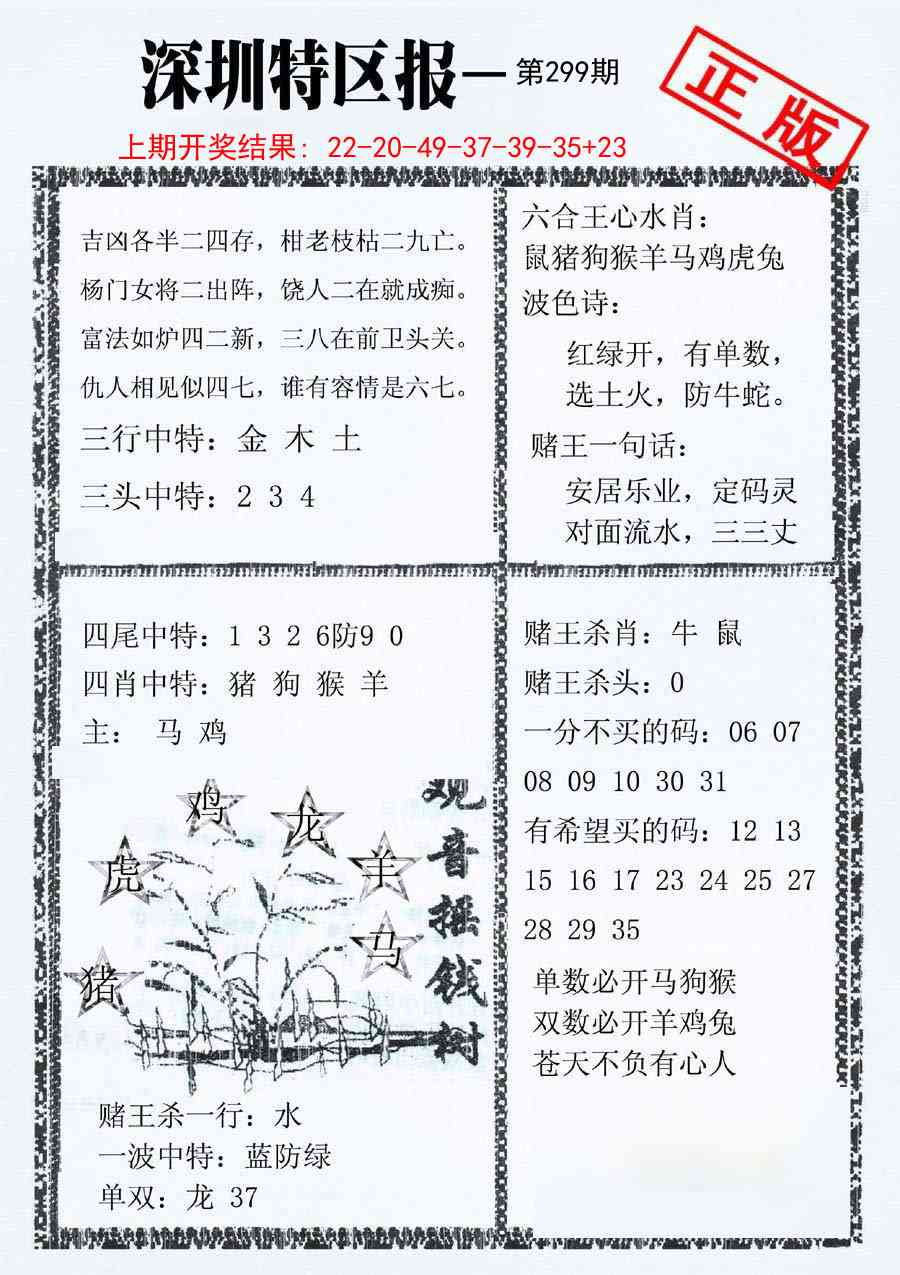 深圳特区报—第299期
正版
上期开奖结果：22-20-49-37-39-35+23
吉凶各半二四存，柑老枝枯二九亡。
杨门女将二出阵，饶人二在就成痴。
富法如炉四二新，三八在前卫头关。
仇人相见似四七，谁有容情是六七。
三行中特：金 木 土
三头中特：2 3 4
六合王心水肖：
鼠猪狗猴羊马鸡虎兔
波色诗：
红绿开，有单数，
选土火，防牛蛇。
赌王一句话：
安居乐业，定码灵
对面流水，三三丈
四尾中特：1 3 2 6防9 0
四肖中特：猪 狗 猴 羊
主： 马 鸡
鸡
龙
虎
羊
马
猪
观音摇钱树
赌王杀一行：水
一波中特：蓝防绿
单双：龙 37
赌王杀肖：牛 鼠
赌王杀头：0
一分不买的码：06 07
08 09 10 30 31
有希望买的码：12 13
15 16 17 23 24 25 27
28 29 35
单数必开马狗猴
双数必开羊鸡兔
苍天不负有心人